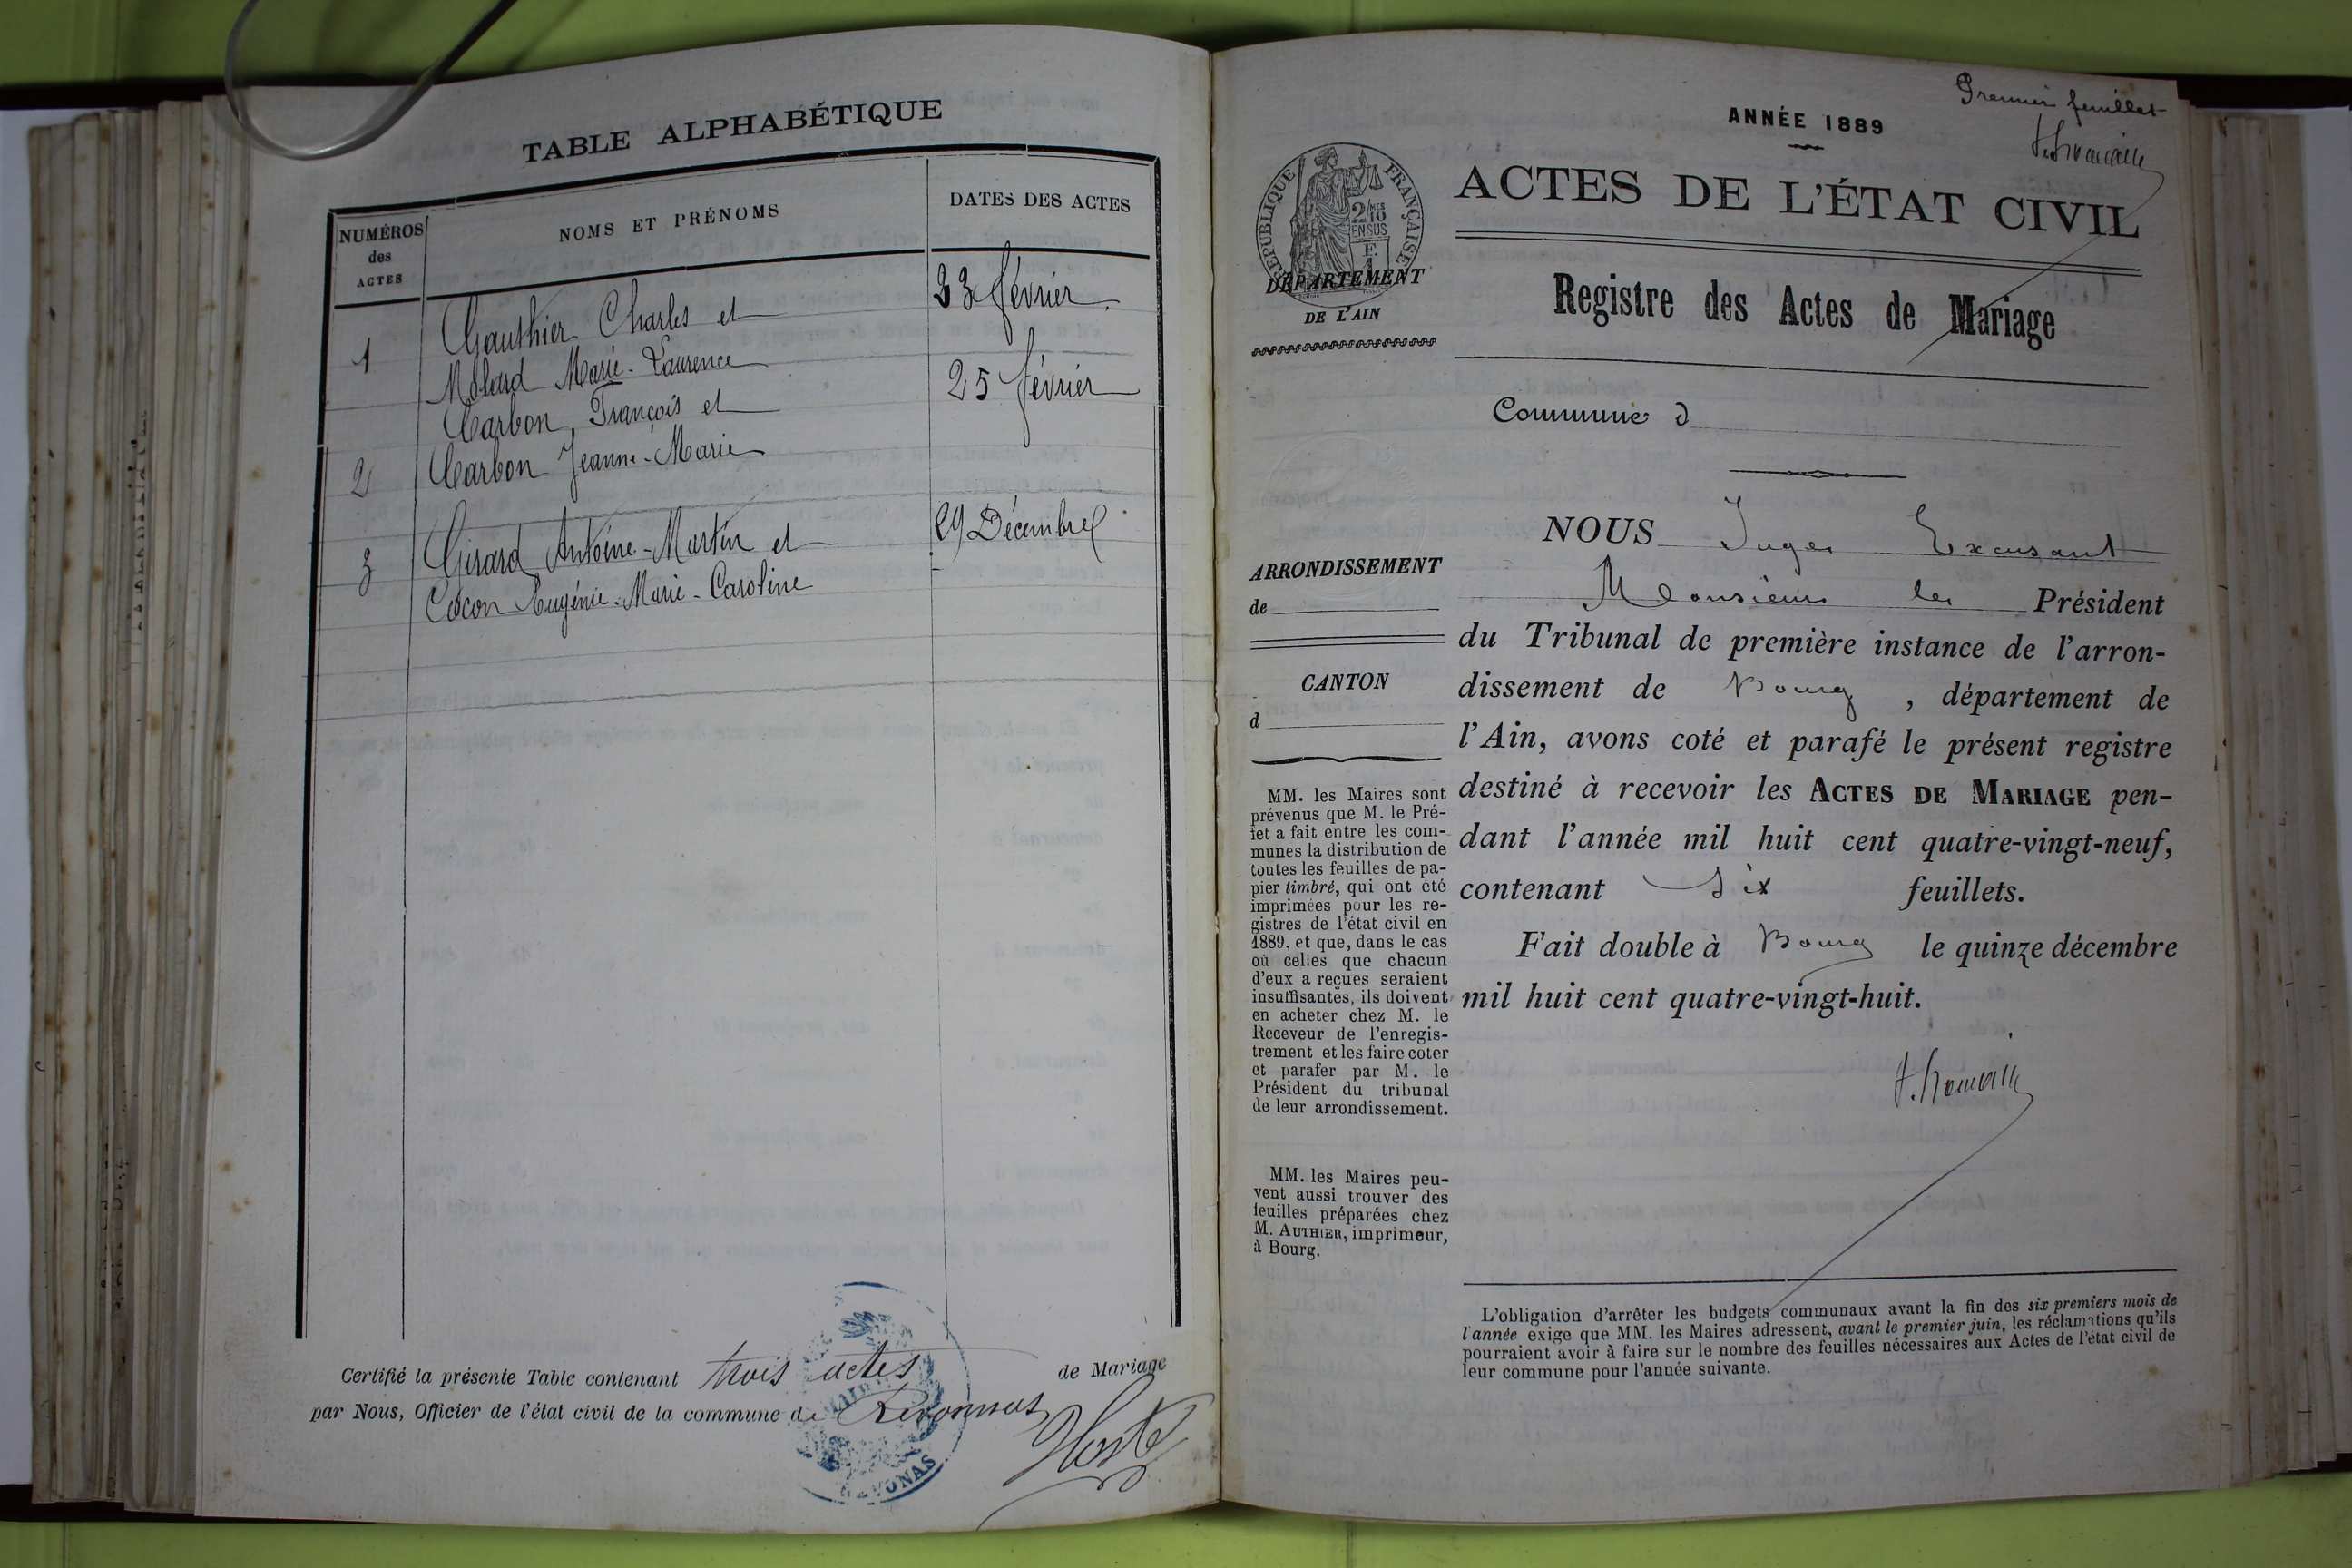 TABLE ALPHABÉTIQUE
NUMÉROS
des
ACTES
NOMS ET PRÉNOMS
DATES DES ACTES
1
Gauthier Charles et
23 février
Molard Marie-Laurence
Carbon François et
25 février
2
Carbon Jeanne-Marie
3
Girard Antoine-Martin et
29 Décembre
Cocon Eugénie-Marie-Caroline
Certifié la présente Table contenant trois actes de Mariage
par Nous, Officier de l'état civil de la commune de Revonnas
Premier feuillet
ANNÉE 1889
RÉPUBLIQUE FRANÇAISE
2/10
EN SUS
DÉPARTEMENT
DE L'AIN
ACTES DE L'ÉTAT CIVIL
Registre des Actes de Mariage
Commune d
ARRONDISSEMENT
de
CANTON
d
MM. les Maires sont
prévenus que M. le Pré-
fet a fait entre les com-
munes la distribution de
toutes les feuilles de pa-
pier timbré, qui ont été
imprimées pour les re-
gistres de l'état civil en
1889, et que, dans le cas
où celles que chacun
d'eux a reçues seraient
insuffisantes, ils doivent
en acheter chez M. le
Receveur de l'enregis-
trement et les faire coter
et parafer par M. le
Président du tribunal
de leur arrondissement.
MM. les Maires peu-
vent aussi trouver des
feuilles préparées chez
M. AUTHIER, imprimeur,
à Bourg.
NOUS Juge Excusant
Monsieur le Président
du Tribunal de première instance de l'arron-
dissement de Bourg, département de
l'Ain, avons coté et parafé le présent registre
destiné à recevoir les ACTES DE MARIAGE pen-
dant l'année mil huit cent quatre-vingt-neuf,
contenant Six feuillets.
Fait double à Bourg le quinze décembre
mil huit cent quatre-vingt-huit.
L'obligation d'arrêter les budgets communaux avant la fin des six premiers mois de
l'année exige que MM. les Maires adressent, avant le premier juin, les réclamations qu'ils
pourraient avoir à faire sur le nombre des feuilles nécessaires aux Actes de l'état civil de
leur commune pour l'année suivante.